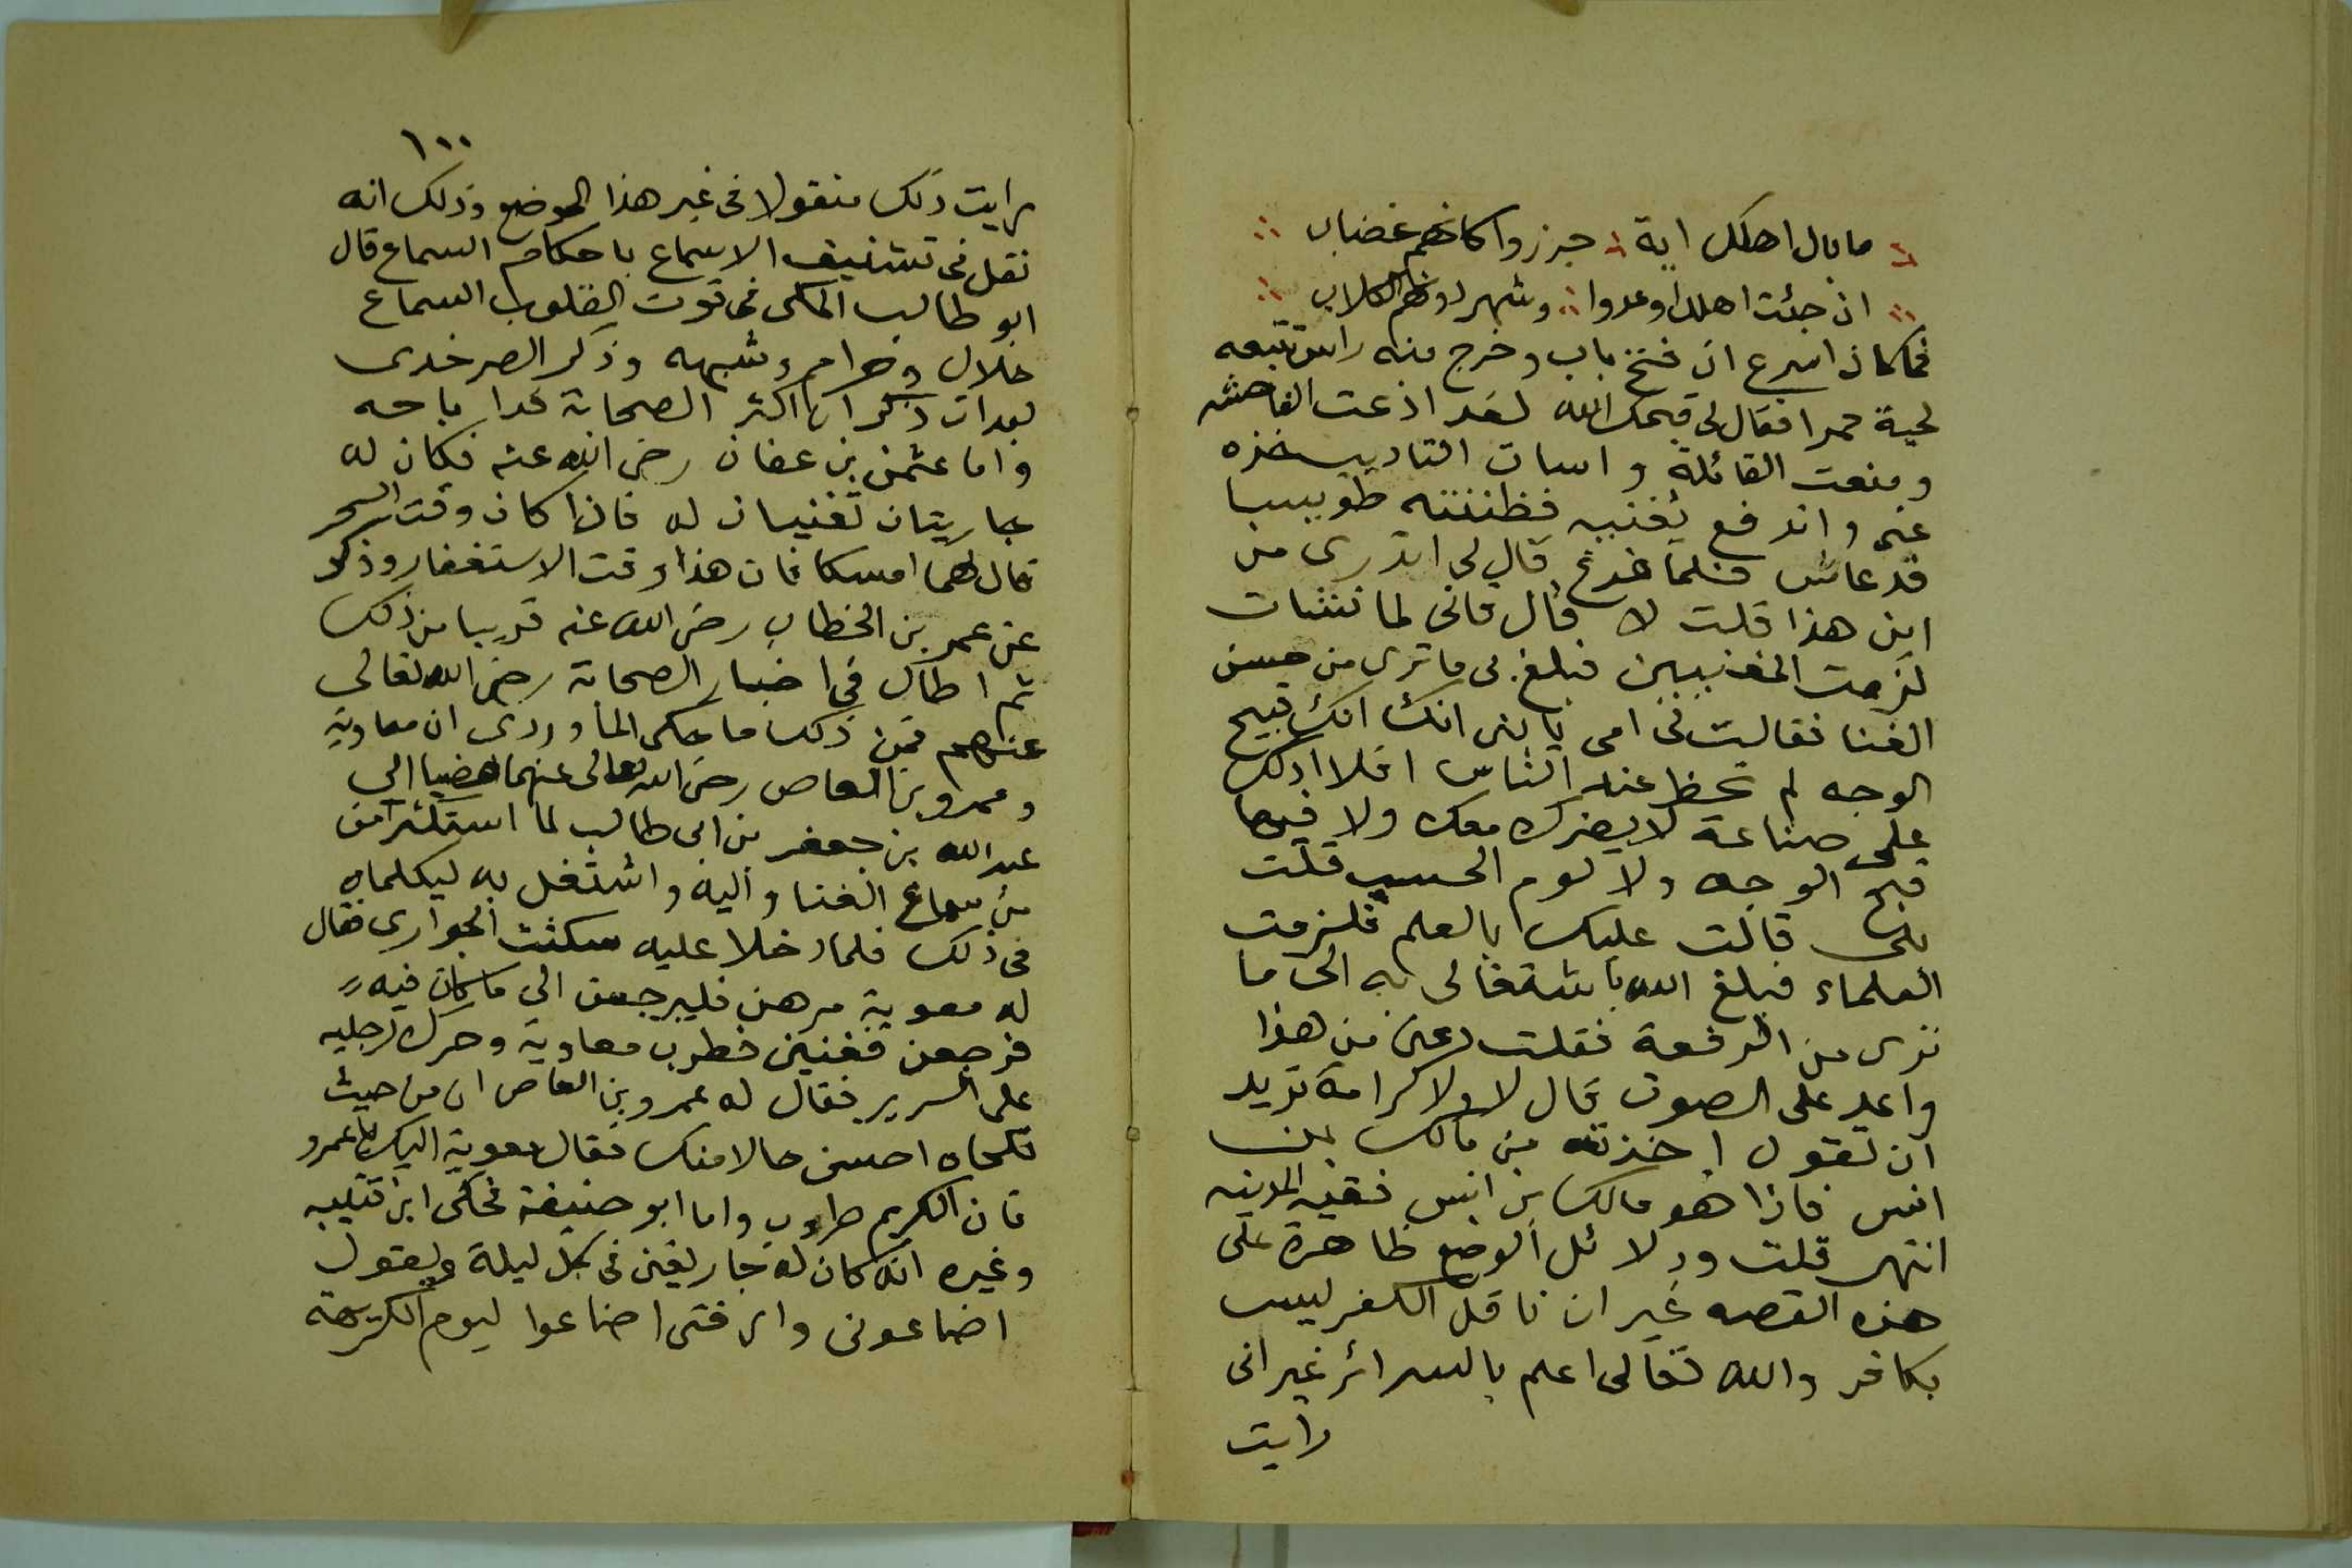 ما بال اهلك اية جزروا كانهم غضاب
ان جئت اهلك اوعدوا وشهر دونهم الكلاب
فما كان اسرع ان فتح باب وخرج منه راس تتبعه
لحية حمرا فقال لى قبحك الله لقد اذعت الفاحشه
ومنعت القائلة واسات التاديب خذه
عنى واندفع يغنيه فظننته طويسا
قد عاش فلما فرغ قال لى اتدرى من
اين هذا قلت لا قال فانى لما نشات
لزمت المغنيين فبلغ بى ما ترى من حسن
الغنا فقالت لى امى يا بنى انك انك قبيح
الوجه لم تحظ عند الناس افلا ادلك
على صناعة لا يضرك معك ولا فيها
قبح الوجه ولا لوم الحسب قلت
بلى قالت عليك بالعلم فلزمت
العلماء فبلغ الله تعالى به الى ما
ترى من الرفعة فقلت دعنى من هذا
واعد على الصوت قال لا ولا كرامة تريد
ان تقول اخذته من مالك بن
انس فاذا هو مالك بن انس فقيه المدينه
انتهى قلت ودلائل الوضع ظاهرة على
هذه القصه غير ان ناقل الكفر ليس
بكافر والله تعالى اعلم بالسرائر غير انى
رايت
١٠٠
رايت ذلك منقولا فى غير هذا الموضع وذلك انه
نقل فى تشنيف الاسماع باحكام السماع قال
ابو طالب المكى فى قوت القلوب السماع
حلال وحرام وشبهه وذكر الصرخدى
بعد ان ذكر ان اكثر الصحابة اباحه
واما عثمن بن عفان رضى الله عنه فكان له
جاريتان تغنيان له فاذا كان وقت السحر
قال لهما امسكا فان هذا وقت الاستغفار وذكر
عن عمر بن الخطاب رضى الله عنه قريبا من ذلك
ثم اطال فى اخبار الصحابة رضى الله تعالى
عنهم فمن ذلك ما حكى الماوردى ان معاوية
وعمرو بن العاص رضى الله تعالى عنهما مضيا الى
عبد الله بن جعفر بن ابى طالب لما استكثر من
من سماع الغنا واليه واشتغل به ليكلماه
فى ذلك فلما دخلا عليه سكتت الجوارى فقال
له معوية مرهن فليرجعن الى ما كان فيه
فرجعن فغنين فطرب معاوية وحرك رجليه
على السرير فقال له عمرو بن العاص ان من جيت
تلحاه احسن حالا منك فقال معوية اليك يا عمرو
فان الكريم طروب واما ابو حنيفة فحكى ابن قتيبه
وغيره انه كان له جار يغنى فى كل ليلة ويقول
اضاعونى واى فتى اضاعوا ليوم الكريهة